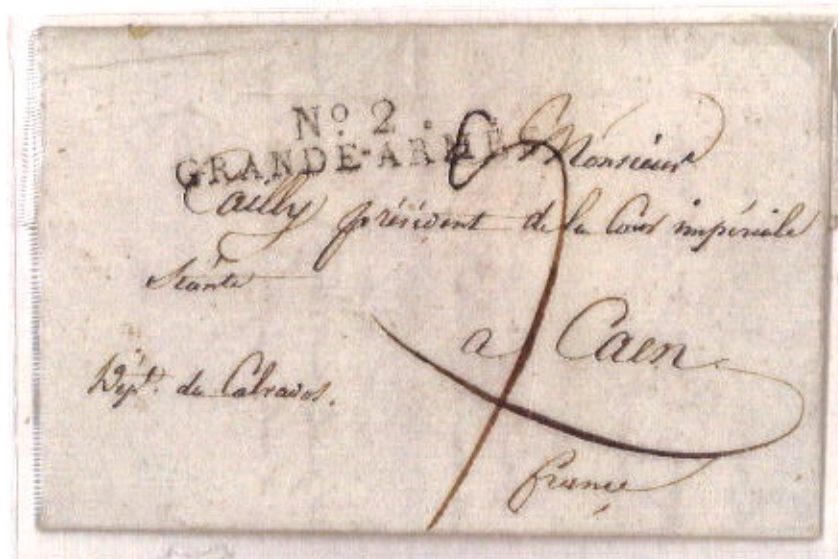 Nº 2.
GRANDE-ARMÉE
Monsieur
Cailly président de la Cour impériale
Séante
a Caen
Dépt. du Calvados.
france